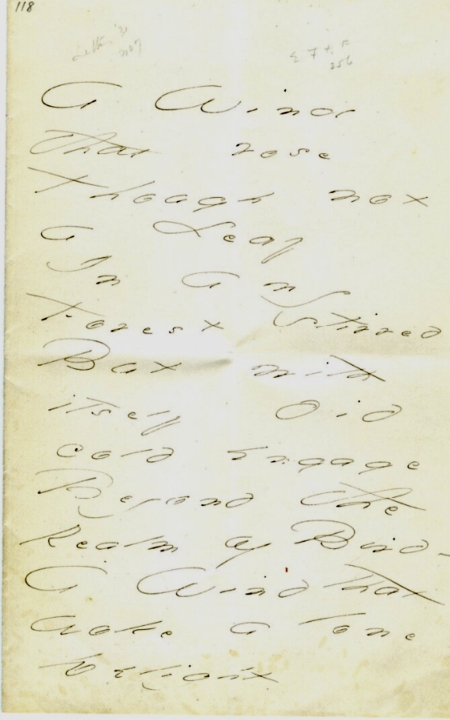 118
A Wind
that rose
Though not
a Leaf
In any
Forest stirred
But with
itself did
cold engage
Beyond the
Realm of Bird -
A Wind that
woke a lone
Delight